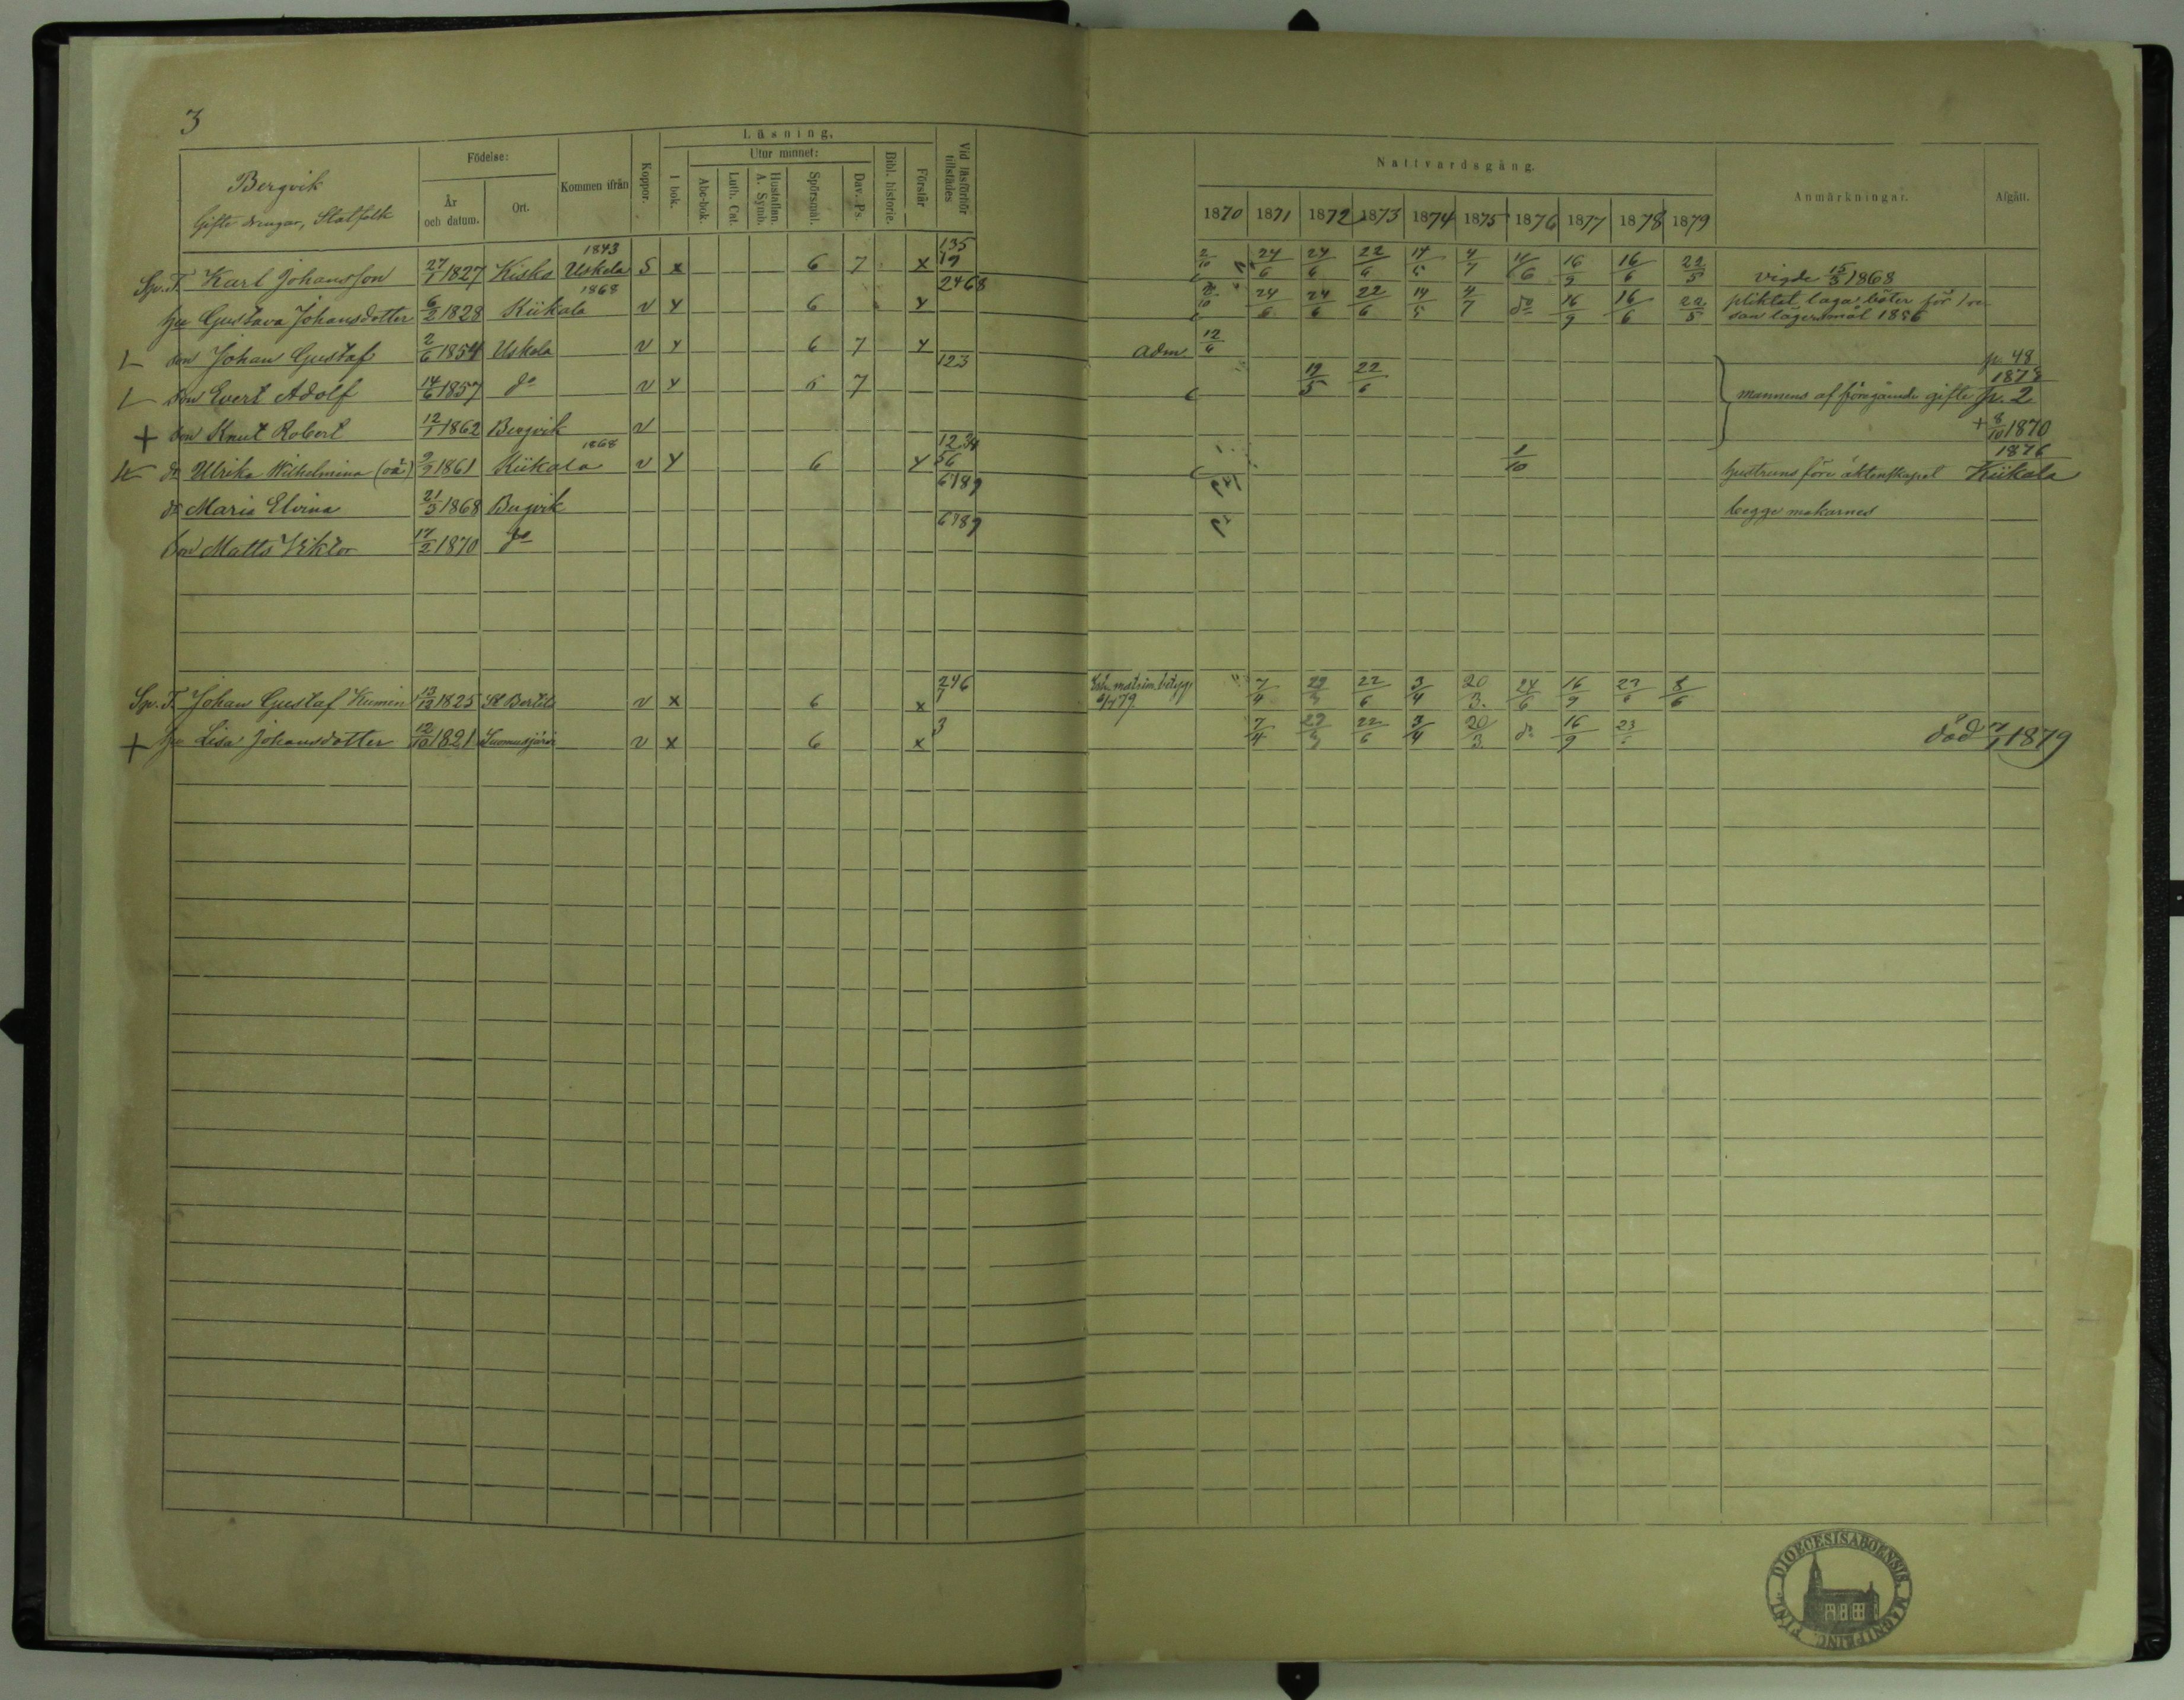 3
Bergvik
Gifte drengar, Statfolk
Födelse: År och datum. Ort. Kommen ifrån Koppor. Läsning. I bok. Utur minnet: Abc-bok. Luth. Cat. Hustaflan. A. Symb. Spörsmål. Dav. Ps. Bibl. historie. Förstår Vid läsförhör tillstädes
Nattvardsgång. 1870 1871 1872 1873 1874 1875 1876 1877 1878 1879 Anmärkningar. Afgått.
Sp. T. Karl Johansson 27/1 1827 Kisko 1843 Uskela S x 6 7 x 135 19 2/10 24/6 24/6 22/6 14/5 4/7 11/6 16/9 16/6 22/5 vigde 15/3 1868
hu Gustava Johansdotter 6/2 1828 Kiikala 1868 v Y 6 Y 2468 24/6 24/6 22/6 14/5 4/7 do 16/9 16/6 22/5 pliktat laga böter för
lägersmål 1856
son Johan Gustaf 2/6 1854 Uskela v Y 6 7 Y adm 12/6 p. 48
son Evert Adolf 14/6 1857 do v Y 6 7 123 19/5 22/6 mannens af föregående gifte 1878 p. 2
+ son Knut Robert 12/1 1862 Bergvik v + 8/10 1870
dr Ulrika Wilhelmina (oä) 1861 Kiikala 1868 v Y 6 Y 1234 56 1/10 hustruns före äktenskapet 1876 Kiikala
dr Maria Elvina 21/5 1868 Bergvik 6789 begge makarnes
son Matts Viktor 17/2 1870 do 6789
Sp. T. Johan Gustaf Kumin 13/12 1825 St Bertils v x 6 x 246 7 7/4 22/6 3/4 20/3 24/6 16/9 23/6 8/6
+ hu Lisa Johansdotter 12/10 1821 Suomusjärvi v x 6 x 3 7/4 22/6 3/4 20/3 do 16/9 23/6 död 7/1 1879
DIOECESIS ABOENSIS. MAGNI PRINC. FINL.